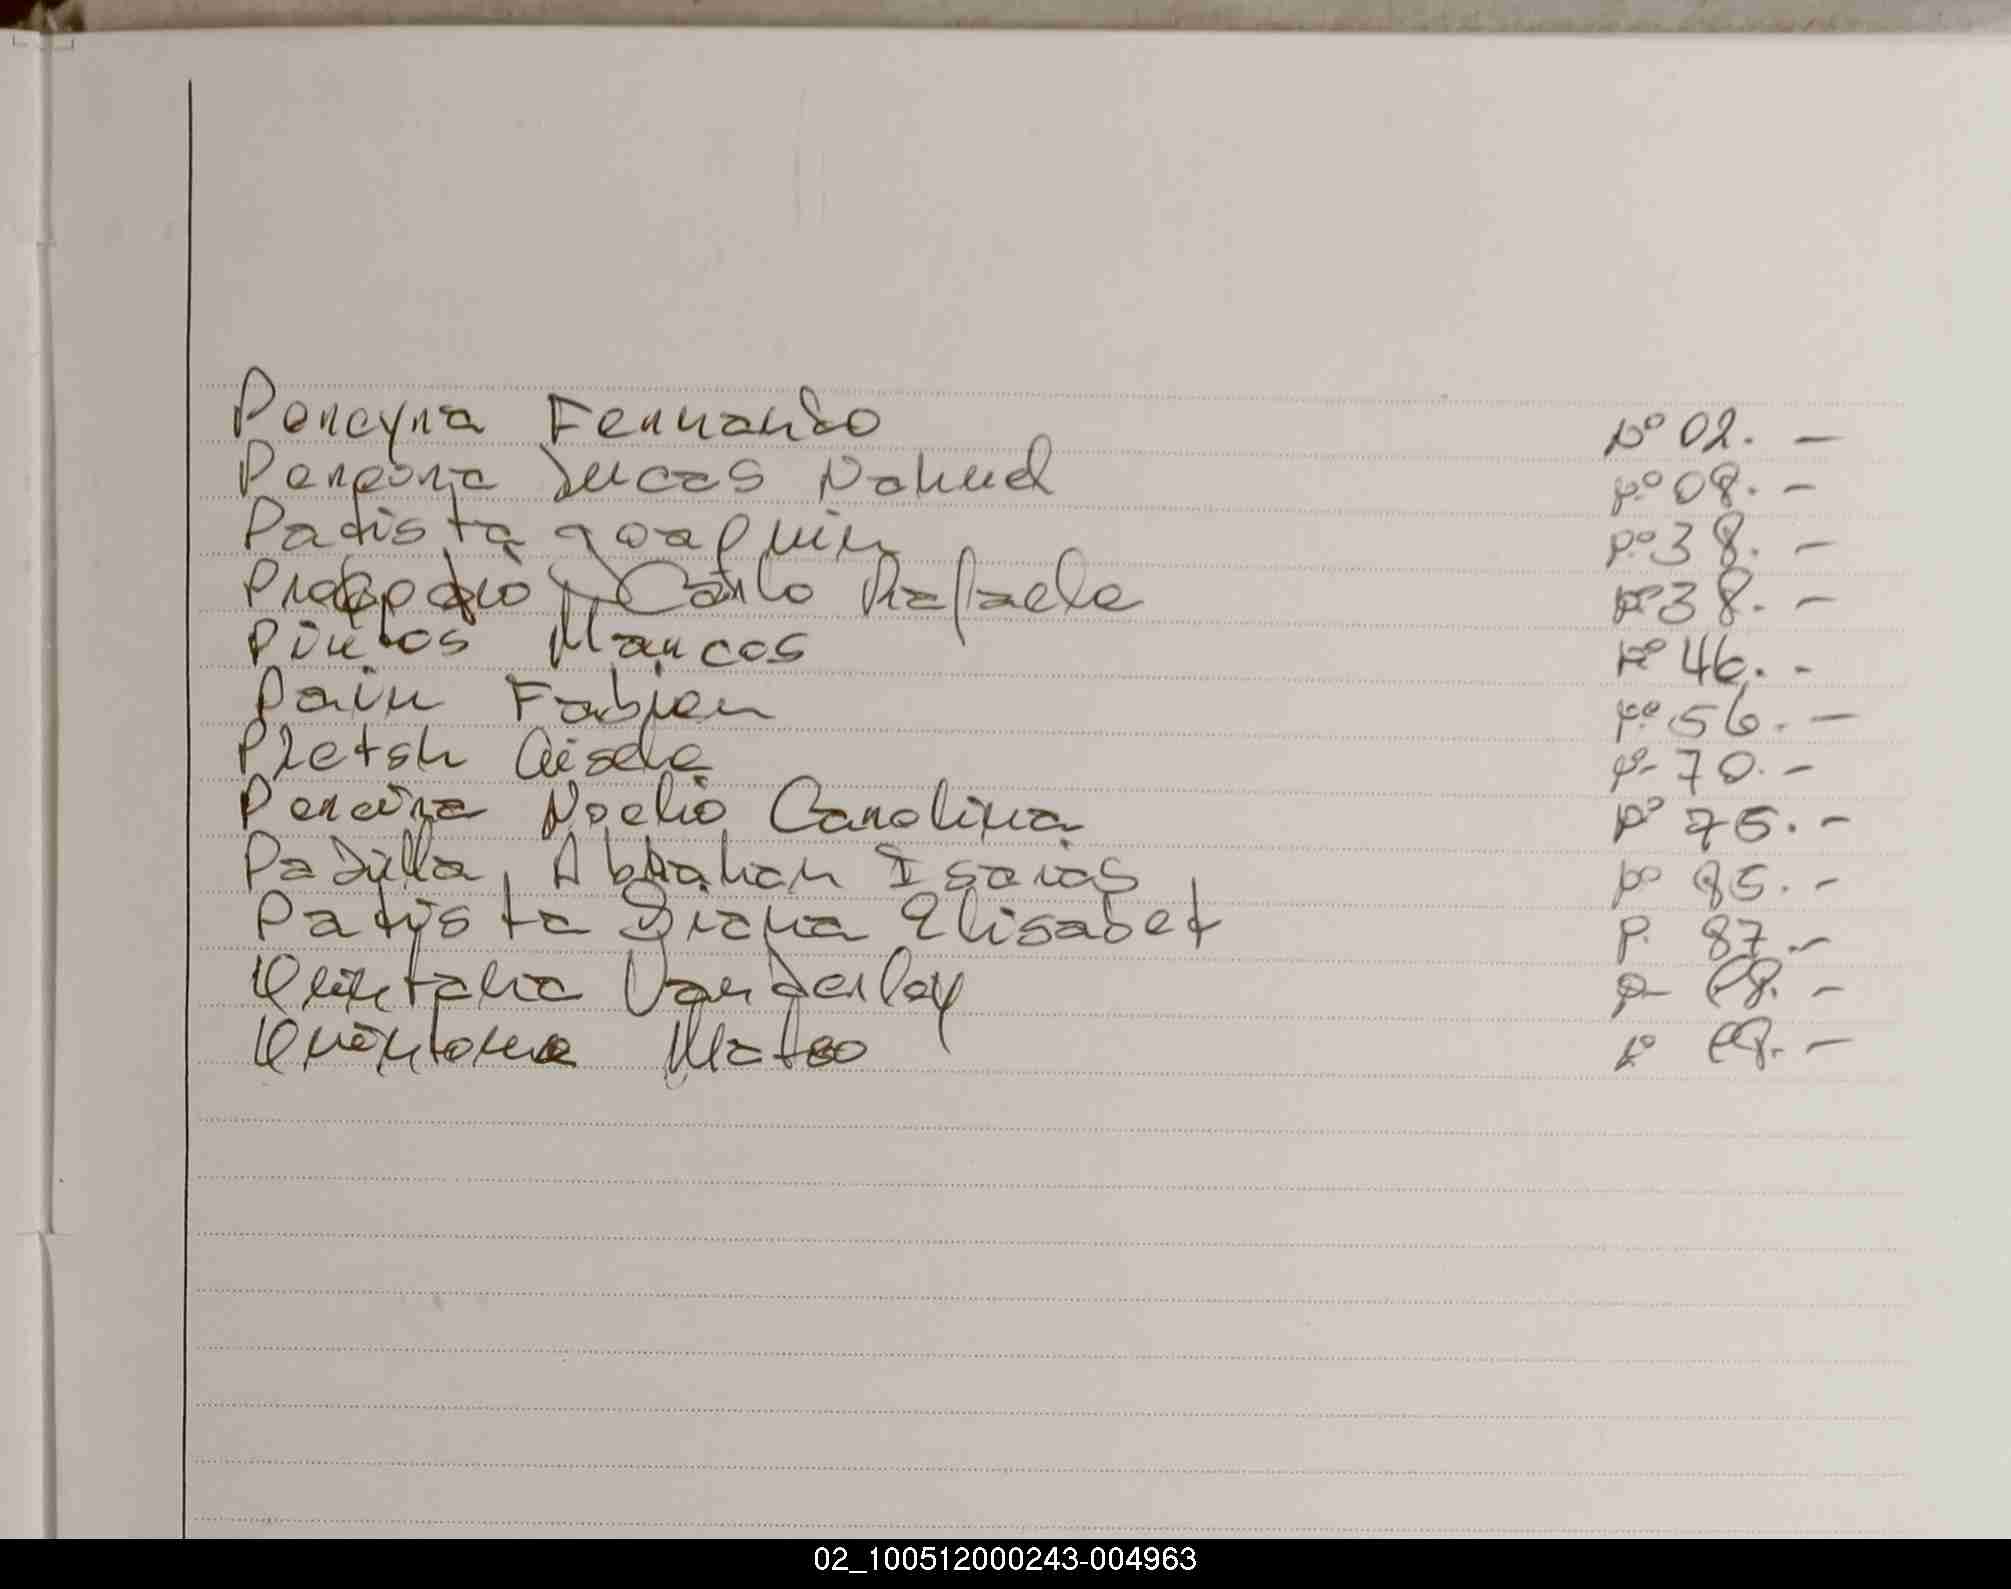 Pereyra Fernando Nº 02. —
Pereira Lucas Nahuel pº 08. —
Patista Joaquin pº 38. —
Carlo Rafaele pº 38. —
Pintos Marcos pº 46. -
Pain Fabian pº 56. —
Pletsh Gisela pº 70. —
Pereira Noelia Carolina pº 75. —
Padilla, Abraham Isaias pº 85. —
Patista Diana Elisabet p. 87. —
Quintana Vanderley —
Quintana Mateo —
02_100512000243-004963